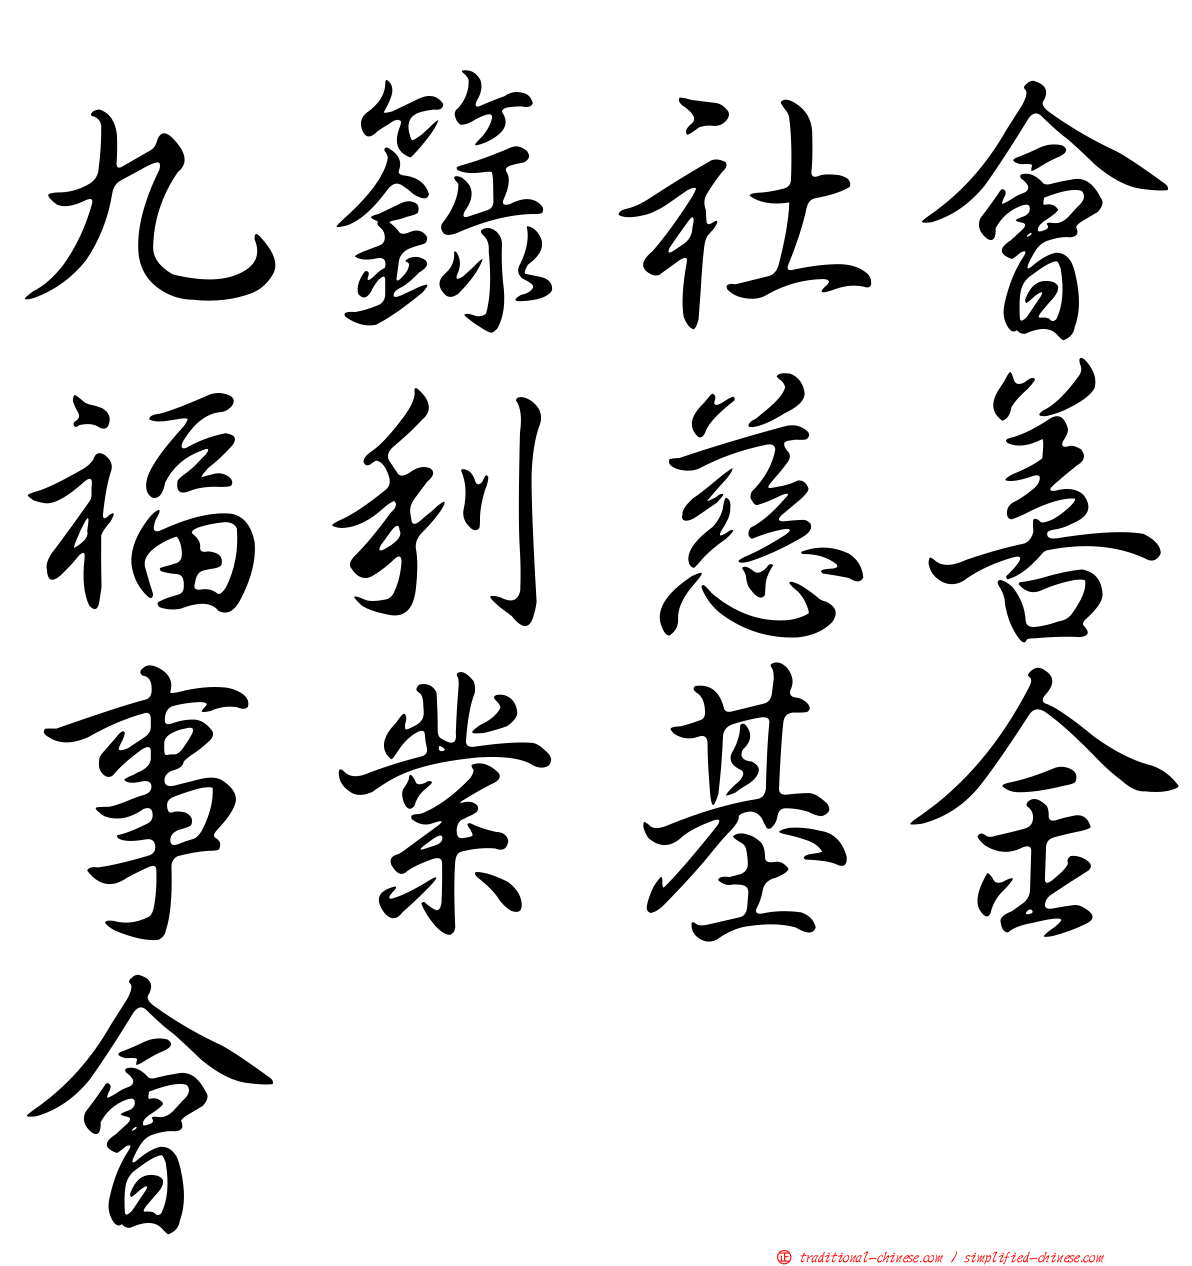 九籙社會
福利慈善
事業基金
會
正 traditional-chinese.com / simplified-chinese.com